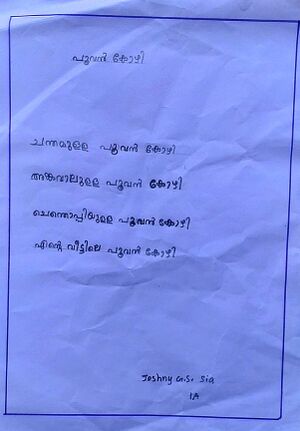 പൂവൻ കോഴി
ചന്തമുള്ള പൂവൻ കോഴി
അങ്കവാലുള്ള പൂവൻ കോഴി
ചെന്തൊപ്പിയുള്ള പൂവൻ കോഴി
എന്റെ വീട്ടിലെ പൂവൻ കോഴി
Joshny G.S. Sia
1A